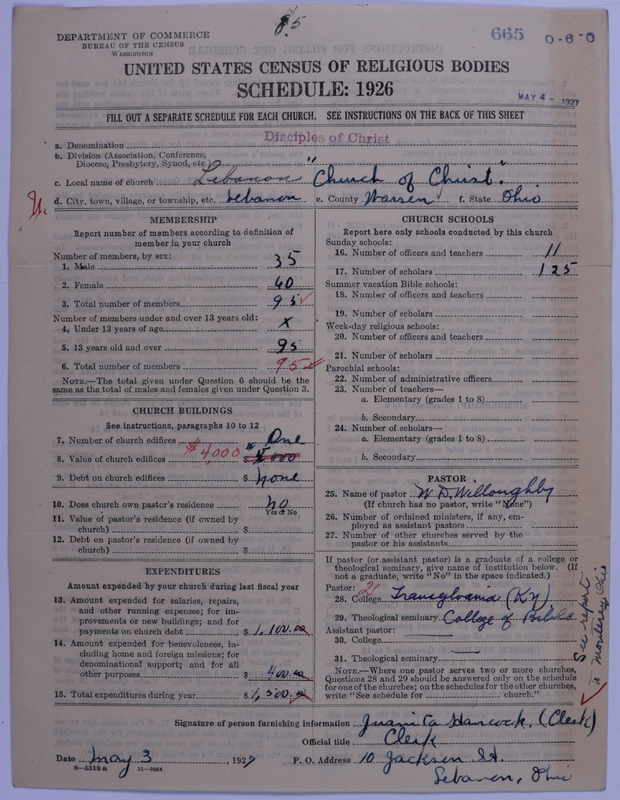 8.5
DEPARTMENT OF COMMERCE
BUREAU OF THE CENSUS
WASHINGTON
665 0-6-0
UNITED STATES CENSUS OF RELIGIOUS BODIES
SCHEDULE: 1926
MAY 4 - 1927
FILL OUT A SEPARATE SCHEDULE FOR EACH CHURCH. SEE INSTRUCTIONS ON THE BACK OF THIS SHEET
Disciples of Christ
a. Denomination
b. Division (Association, Conference, Diocese, Presbytery, Synod, etc.)
c. Local name of church Lebanon "Church of Christ".
d. City, town, village, or township, etc. Lebanon e. County Warren f. State Ohio
MEMBERSHIP
Report number of members according to definition of member in your church
Number of members, by sex:
1. Male 35
2. Female 60
3. Total number of members 95
Number of members under and over 13 years old:
4. Under 13 years of age x
5. 13 years old and over 95
6. Total number of members 95
NOTE.—The total given under Question 6 should be the same as the total of males and females given under Question 3.
CHURCH BUILDINGS
See instructions, paragraphs 10 to 12
7. Number of church edifices One
$4,000
8. Value of church edifices $
9. Debt on church edifices $ none
10. Does church own pastor's residence no
Yes or No
11. Value of pastor's residence (if owned by church) $
12. Debt on pastor's residence (if owned by church) $
EXPENDITURES
Amount expended by your church during last fiscal year
13. Amount expended for salaries, repairs, and other running expenses; for improvements or new buildings; and for payments on church debt $1,100.00
14. Amount expended for benevolences, including home and foreign missions; for denominational support; and for all other purposes $400.00
15. Total expenditures during year $1,500.00
CHURCH SCHOOLS
Report here only schools conducted by this church
Sunday schools:
16. Number of officers and teachers 11
17. Number of scholars 125
Summer vacation Bible schools:
18. Number of officers and teachers
19. Number of scholars
Week-day religious schools:
20. Number of officers and teachers
21. Number of scholars
Parochial schools:
22. Number of administrative officers
23. Number of teachers—
a. Elementary (grades 1 to 8)
b. Secondary
24. Number of scholars—
a. Elementary (grades 1 to 8)
b. Secondary
PASTOR
25. Name of pastor W. D. Willoughby
(If church has no pastor, write "None")
26. Number of ordained ministers, if any, employed as assistant pastors
27. Number of other churches served by the pastor or his assistants
If pastor (or assistant pastor) is a graduate of a college or theological seminary, give name of institution below. (If not a graduate, write "No" in the space indicated.)
Pastor: 2
28. College Transylvania (Ky)
29. Theological seminary College of Bible
Assistant pastor:
30. College
31. Theological seminary
NOTE.—Where one pastor serves two or more churches, Questions 28 and 29 should be answered only on the schedule for one of the churches; on the schedules for the other churches, write "See schedule for church."
See report
Monterey Ohio
Signature of person furnishing information Juanita Hancock. (Clerk)
Official title Clerk
Date May 3, 1927 P. O. Address 10 Jackson St.
8—5518a 11—9054
Lebanon, Ohio